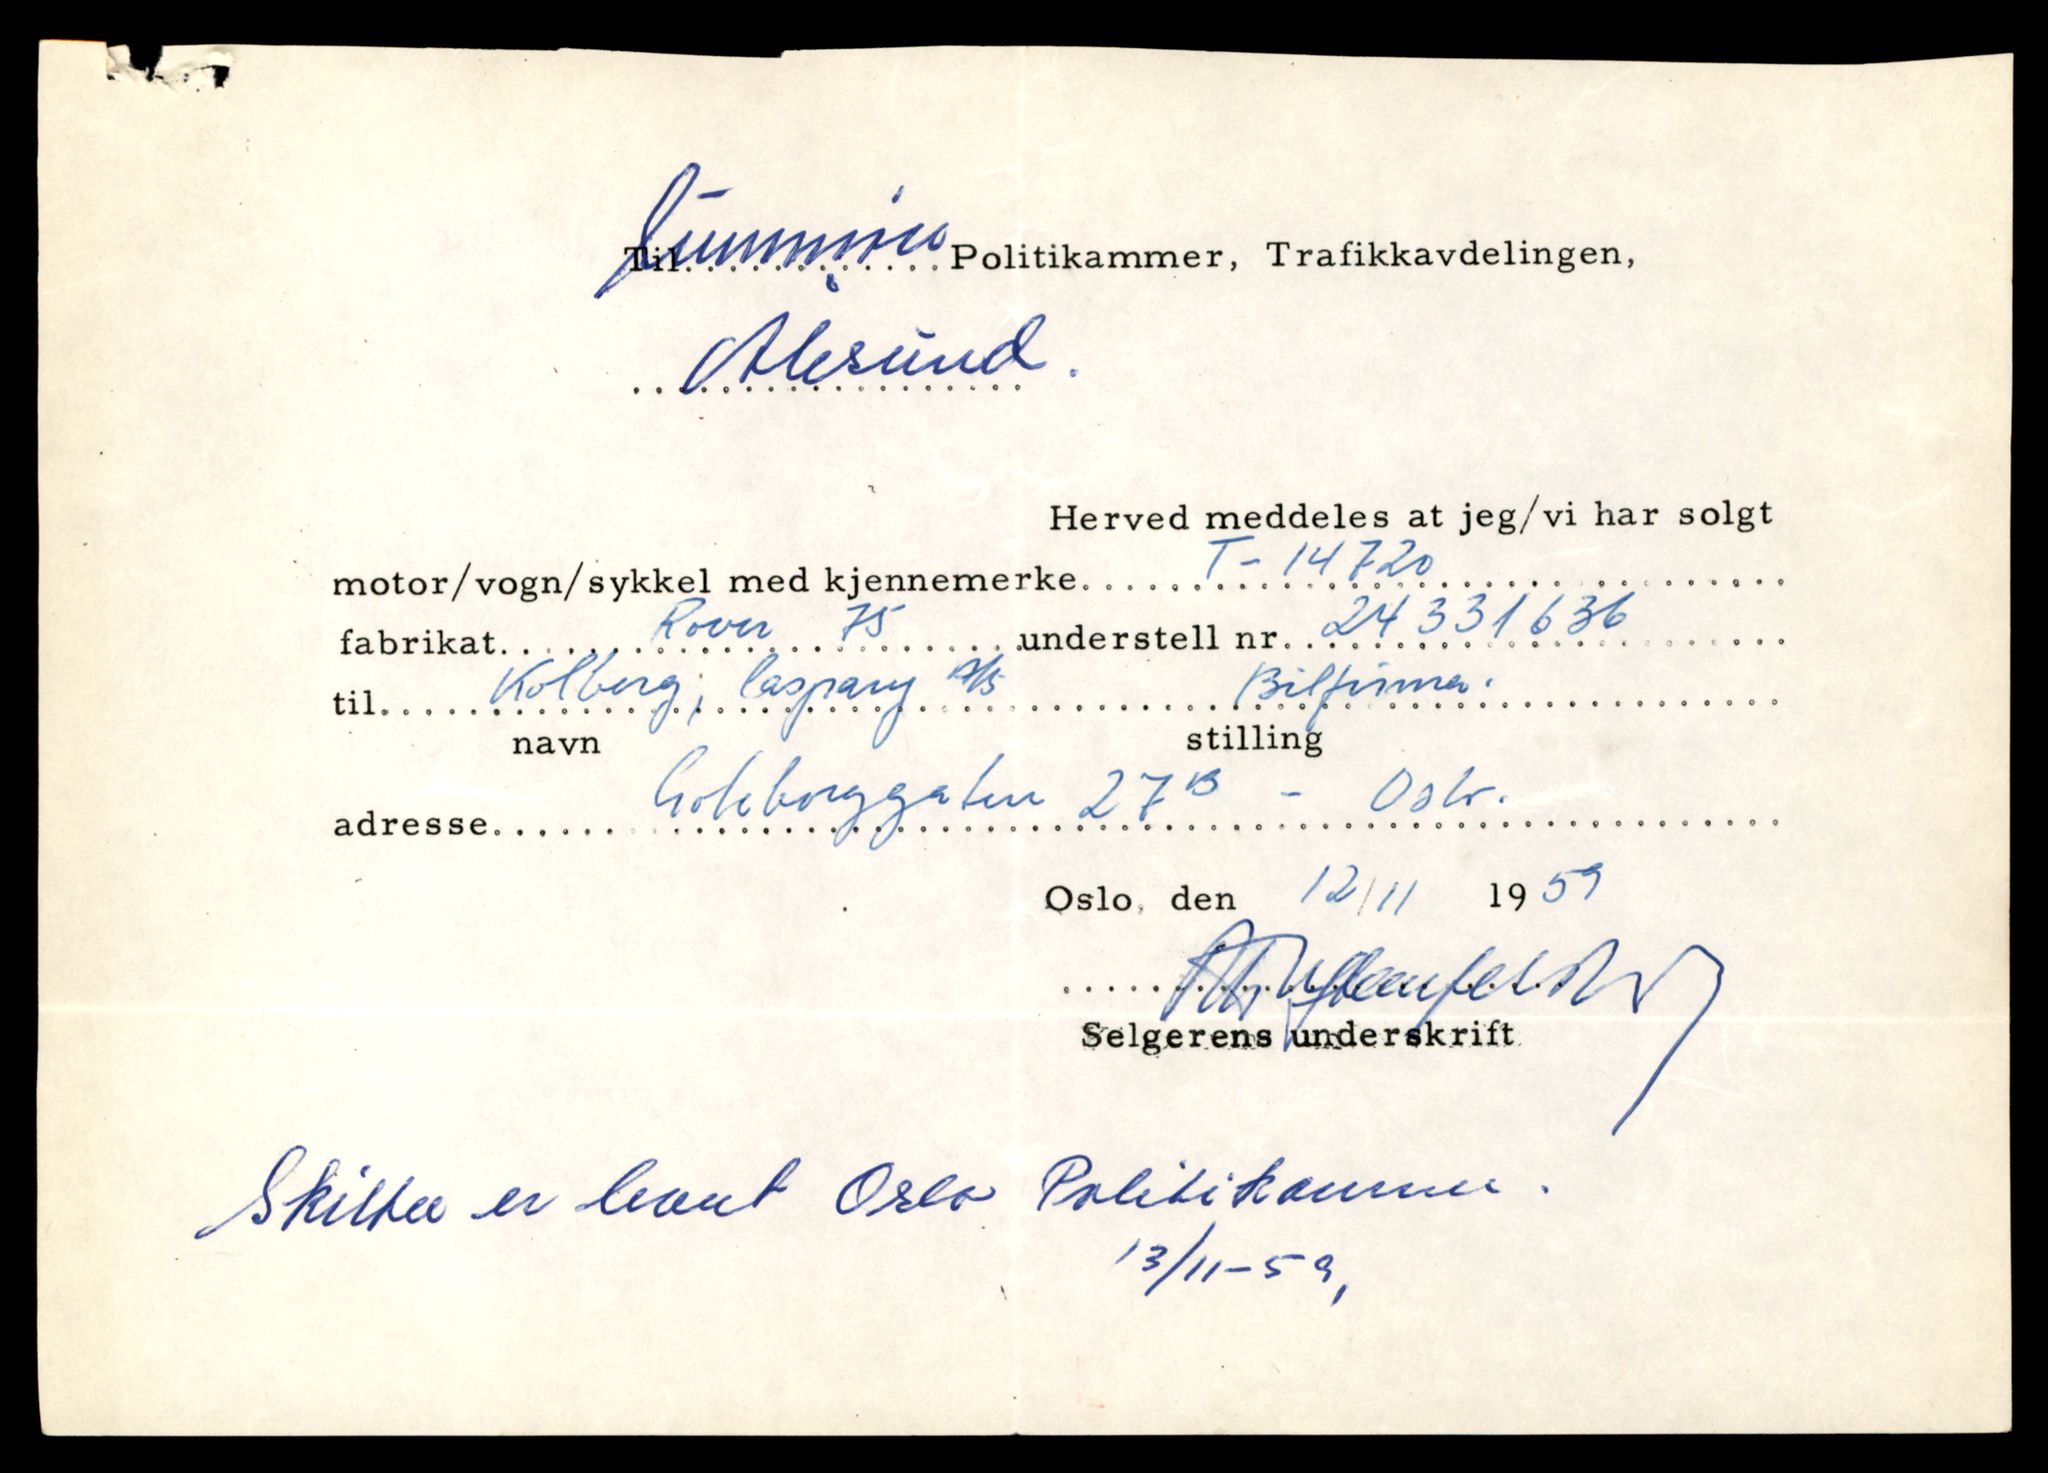 Til Sunnmøre Politikammer, Trafikkavdelingen,
Ålesund.
Herved meddeles at jeg/vi har solgt
motor/vogn/sykkel med kjennemerke T-14720
fabrikat Rover 75 understell nr. 24331636
til Kolberg, Caspary A/S Bilfirma.
navn stilling
adresse Goteborggaten 27B - Oslo.
Oslo, den 12/11 1959
Selgerens underskrift
Skilter er levert Oslo Politikammer.
13/11-59,